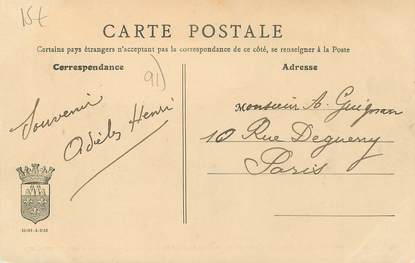 15€
CARTE POSTALE
Certains pays étrangers n'acceptant pas la correspondance de ce côté, se renseigner à la Poste
Correspondance
Adresse
91)
Souvenir
Henri
Monsieur A. Guignan
10 Rue Deguerry
Paris